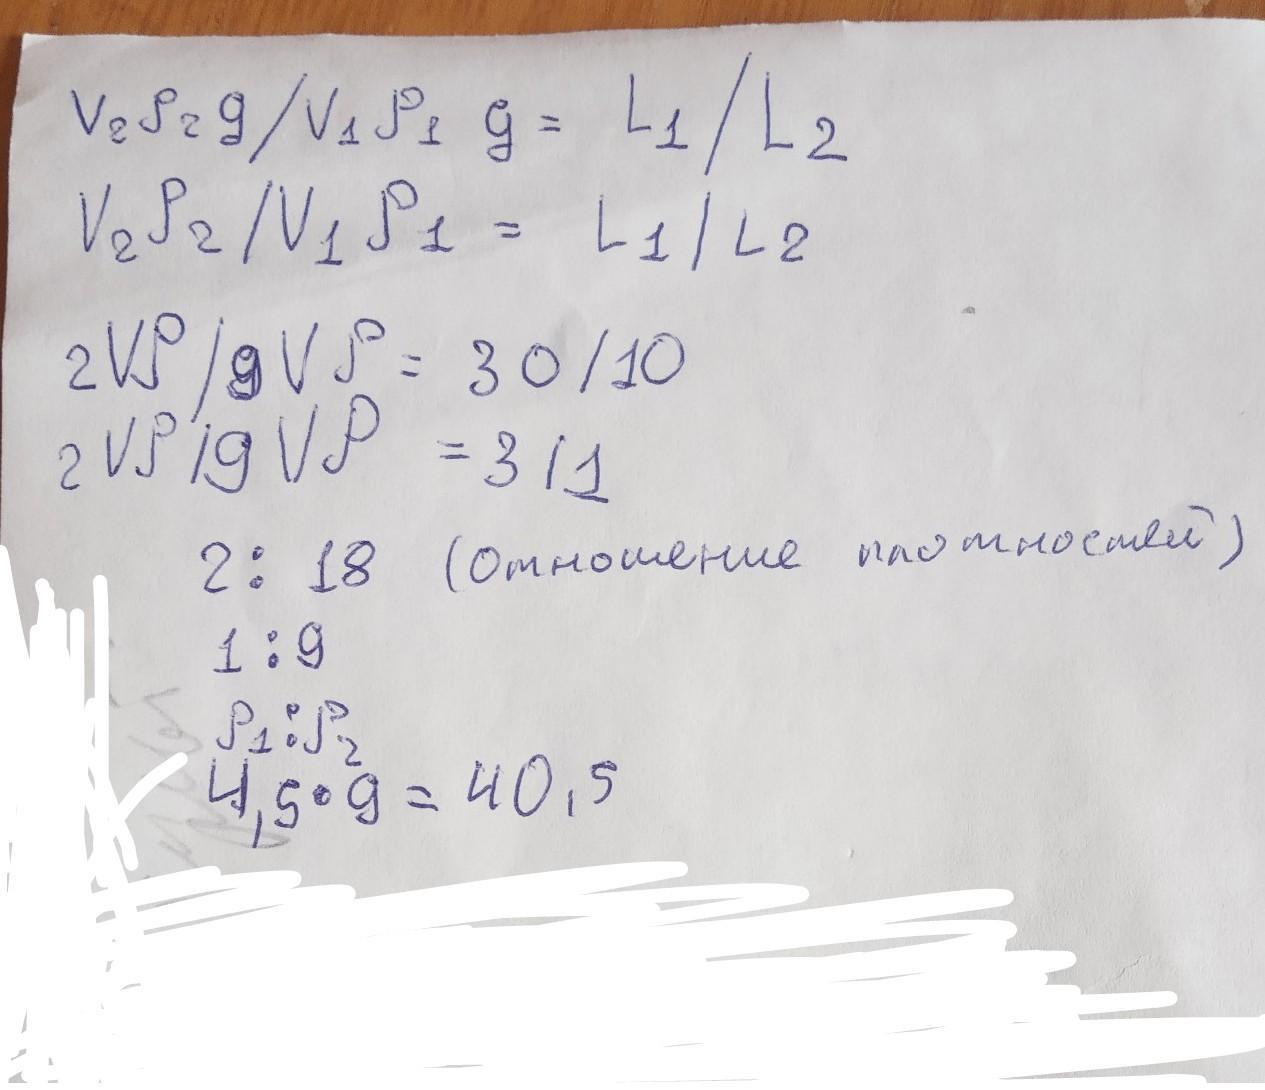 V₂ρ₂g/V₁ρ₁g = L₁/L₂
V₂ρ₂/V₁ρ₁ = L₁/L₂
2Vρ/9Vρ = 30/10
2Vρ/9Vρ = 3/1
2: 18 (Отношение плотностей)
1:9
ρ₁:ρ₂
4,5•9 = 40,5